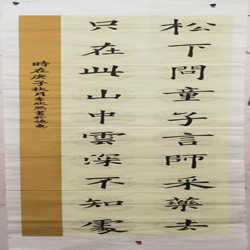 松下問童子言師采藥去
只在此山中雲深不知處
時在庚子秋月